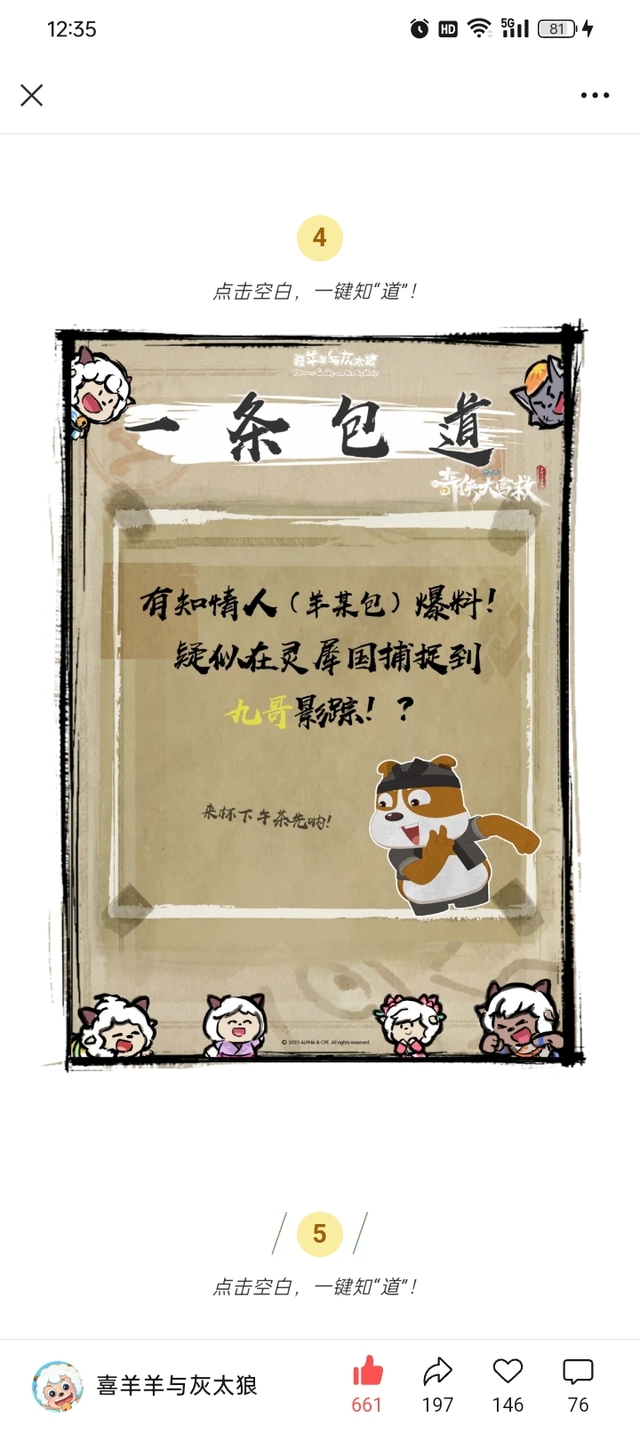 12:35
HD
5G
81
4
点击空白，一键知“道”！
喜羊羊与灰太狼
Pleasant Goat and Big Big Wolf
一条包道
奇侠大营救
有知情人（羊某包）爆料！
疑似在灵犀国捕捉到
九哥影踪！？
来杯下午茶先哟！
© 2023 ALPHA & CPE. All rights reserved.
5
点击空白，一键知“道”！
喜羊羊与灰太狼
661
197
146
76